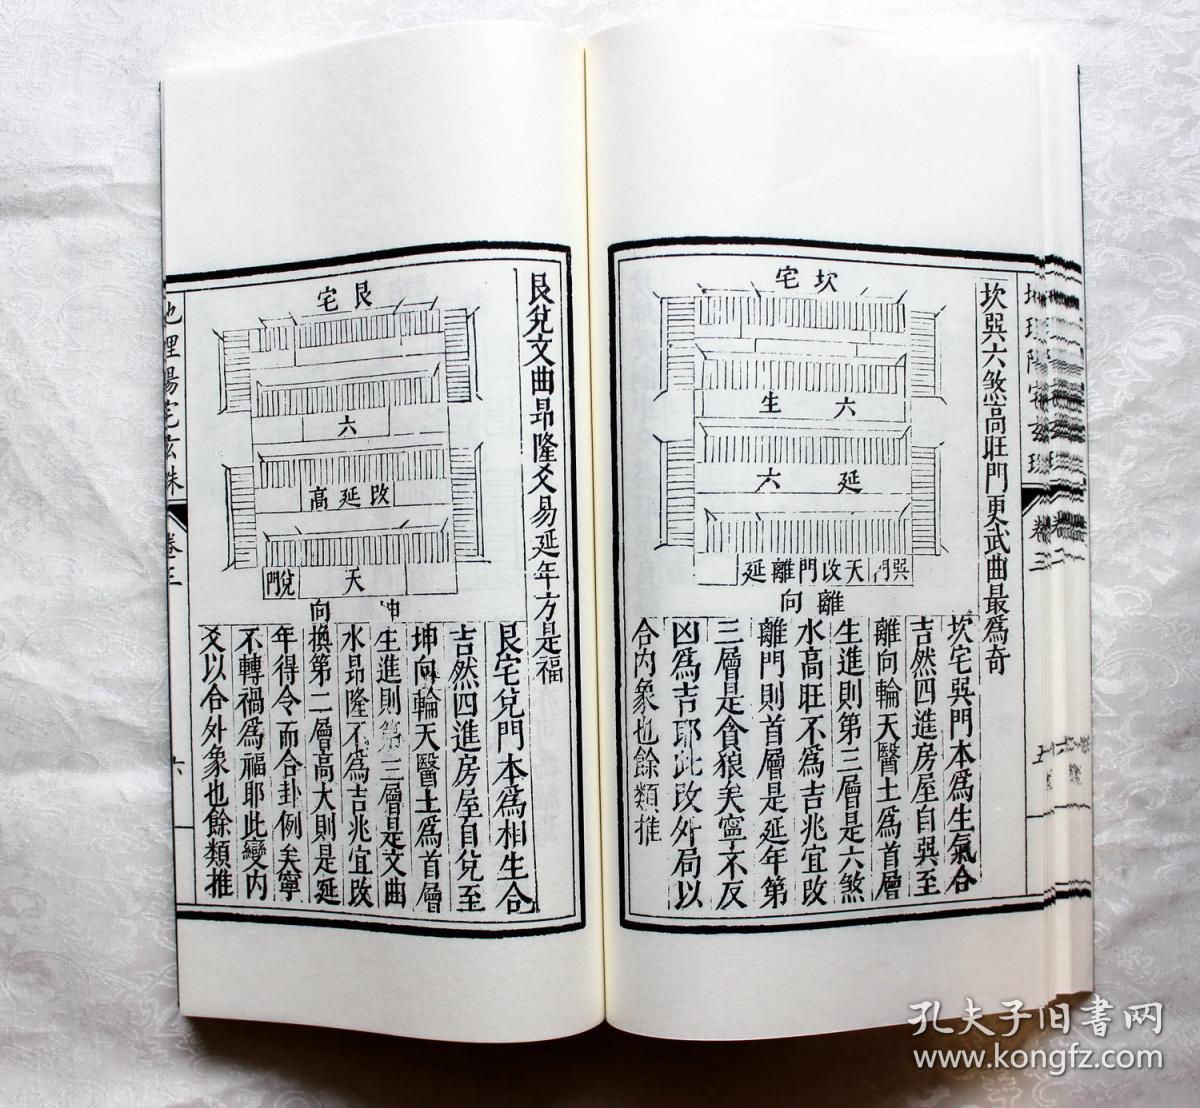 坎巽六煞高旺門更武曲最爲奇
坎宅
六生
延六
巽門
天改門離延
離向
坎宅巽門本爲生氣合
吉然四進房屋自巽至
離向輪天醫土爲首層
生進則第三層是六煞
水高旺不爲吉兆宜改
離門則首層是延年第
三層是貪狼矣寧不反
凶爲吉耶此改外局以
合內象也餘類推
地理陽宅玄珠
卷三
五
艮兌文曲昂隆爻易延年方是福
艮宅
六
改延高
天
兌門
坤向
艮宅兌門本爲相生合
吉然四進房屋自兌至
坤向輪天醫土爲首層
生進則第三層是文曲
水昂隆不爲吉兆宜改
換第二層高大則是延
年得令而合卦例矣寧
不轉禍爲福耶此變內
爻以合外象也餘類推
地理陽宅玄珠
卷三
六
孔夫子旧書网
www.kongfz.com